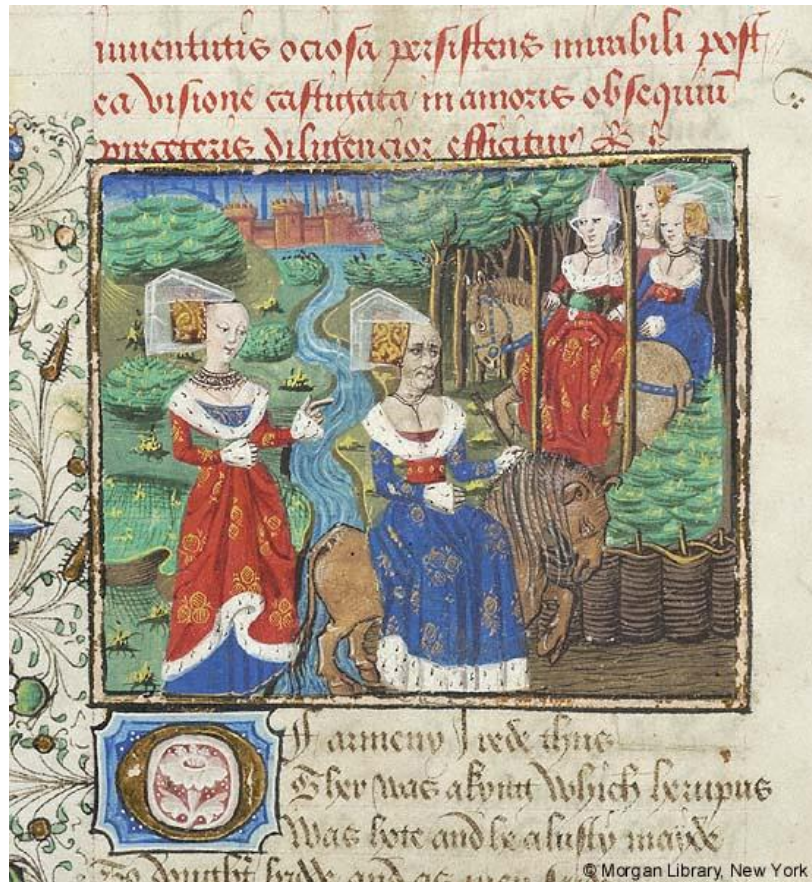 iuventutis ociosa persistens mirabili post
ea visione castigata in amoris obsequiū
pre ceteris diligencior efficitur
Of armeny I rede thus
Ther was a kyng which herupus
Was hote and he a lusty mayde
To doughter hadde and as men
© Morgan Library, New York